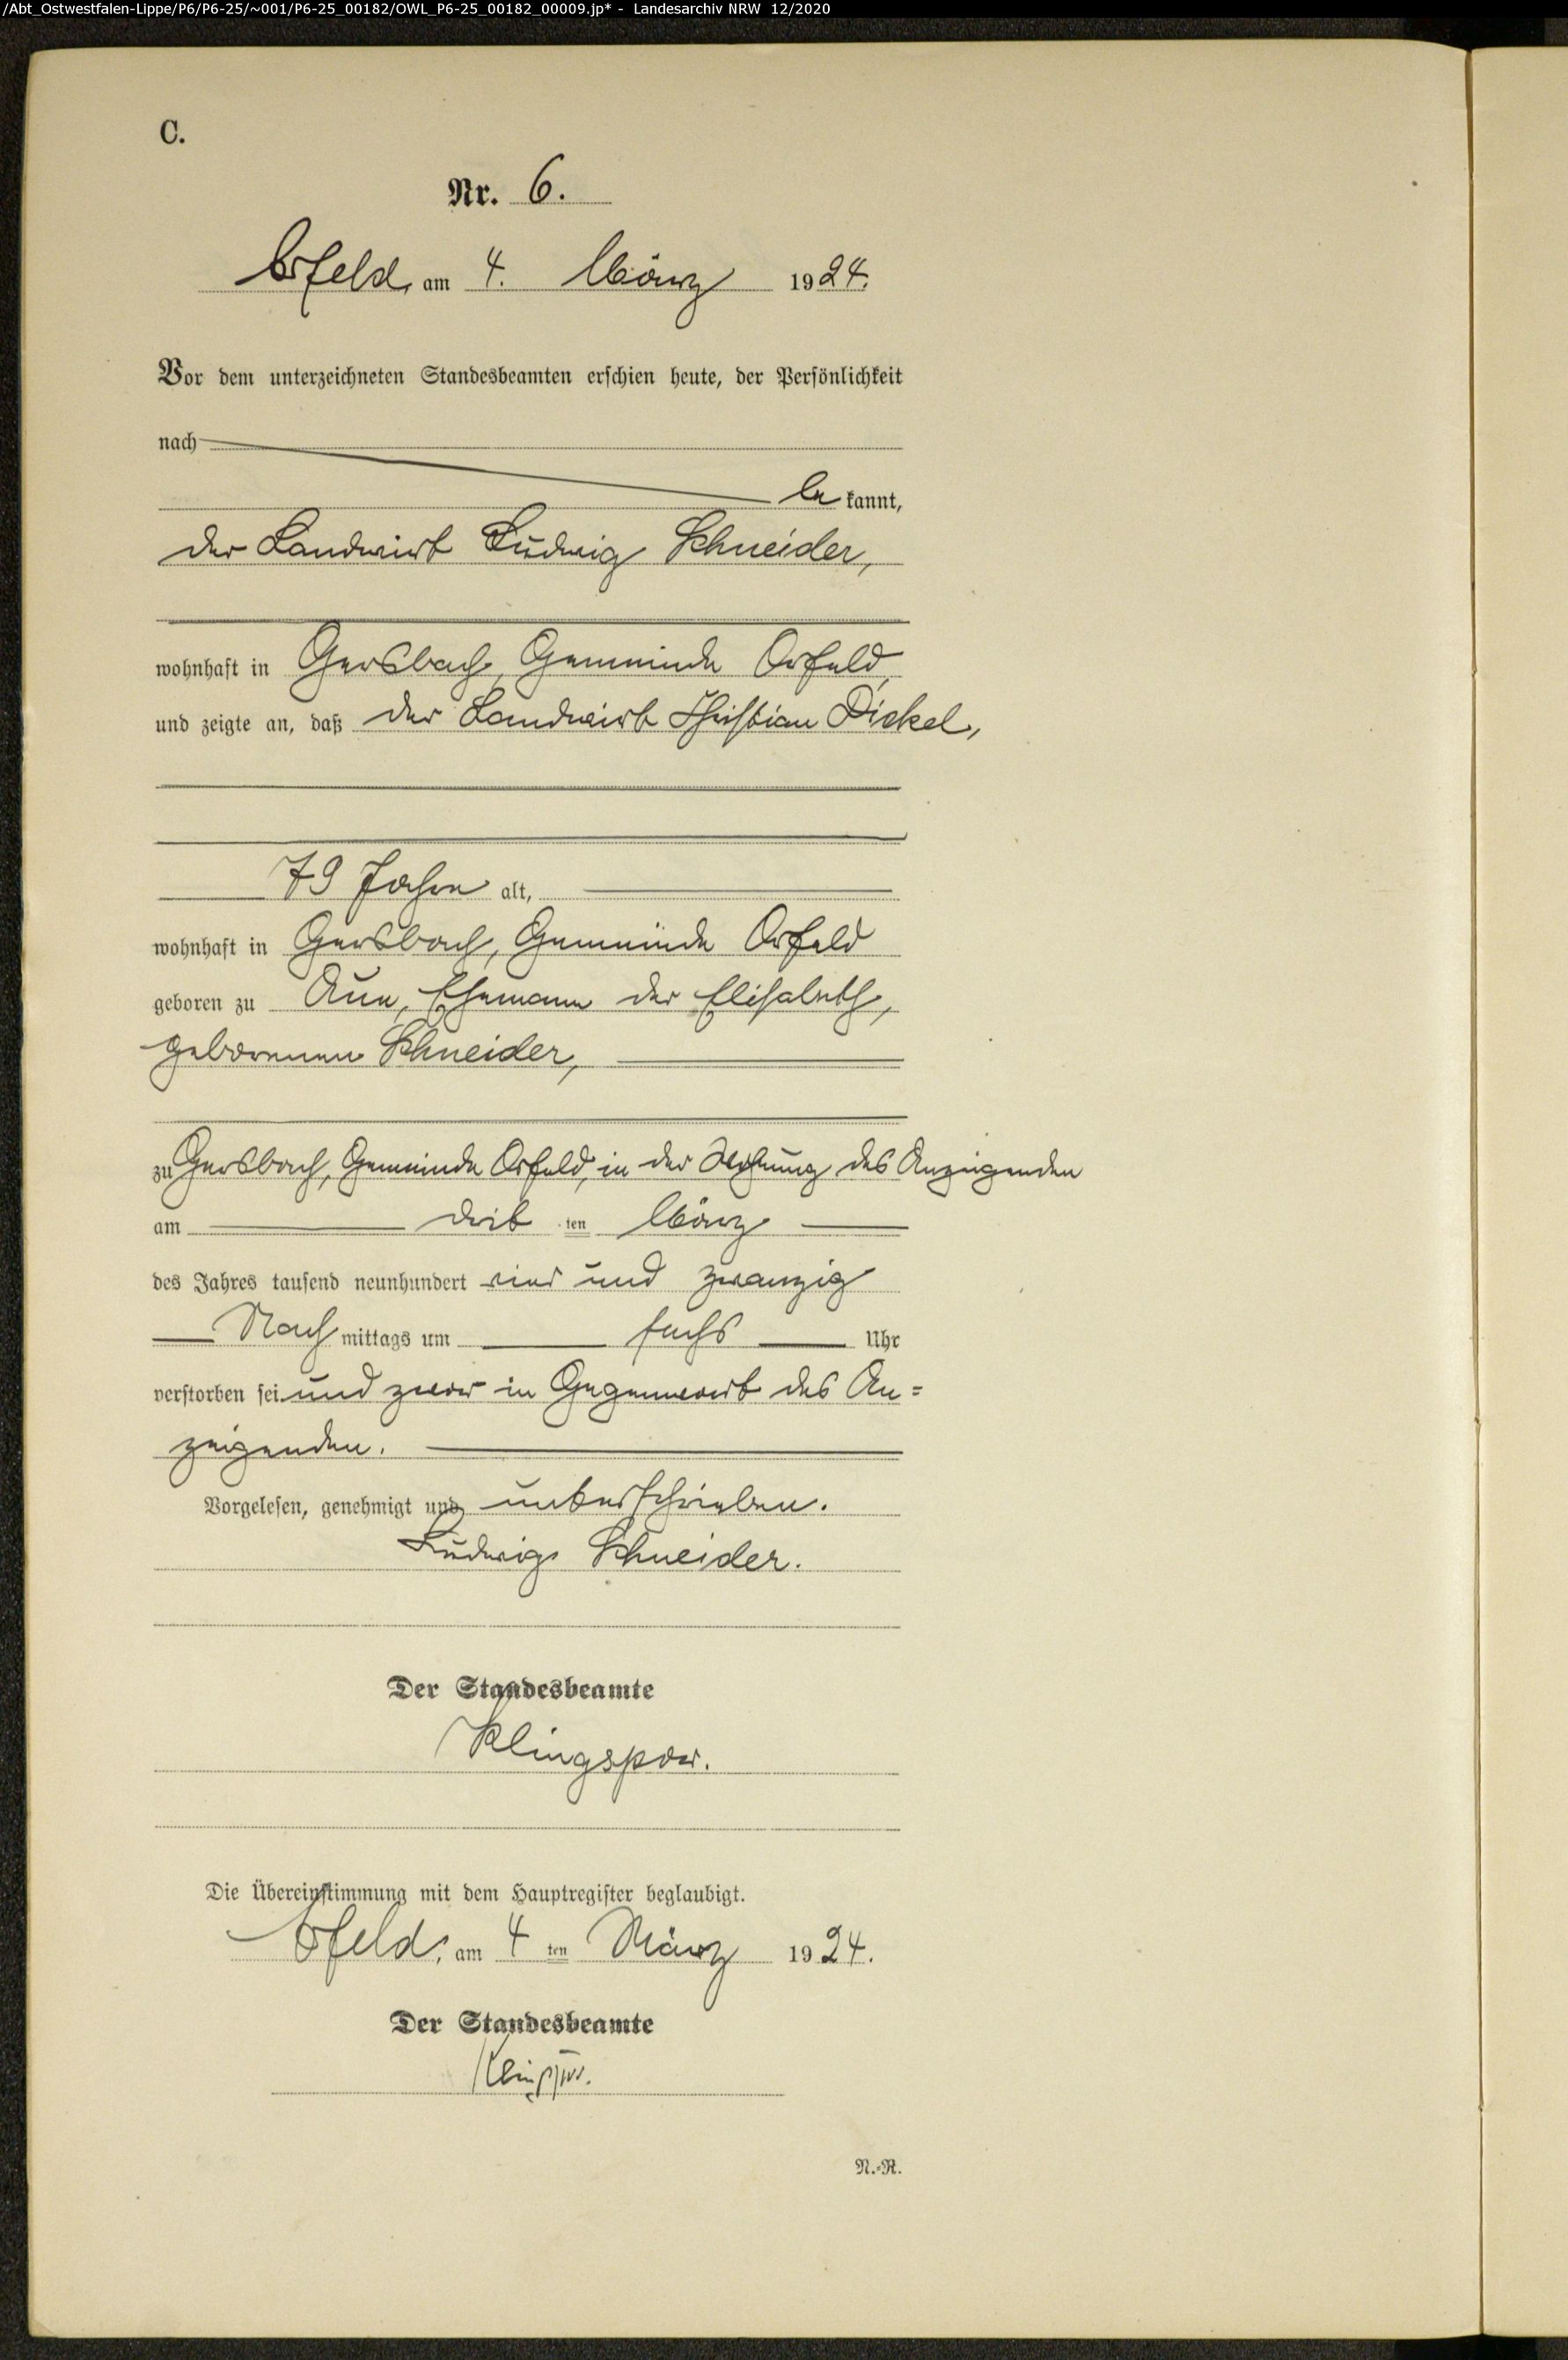 /Abt_Ostwestfalen-Lippe/P6/P6-25/~001/P6-25_00182/OWL_P6-25_00182_00009.jp* - Landesarchiv NRW 12/2020
C.
Nr. 6.
am 4. März 1924.
Vor dem unterzeichneten Standesbeamten erschien heute, der Persönlichkeit
nach
be kannt,
der Landwirt Ludwig Schneider,
wohnhaft in Gersbach, Gemeinde
und zeigte an, daß der Landwirt Christian Dickel,
79 Jahre alt,
wohnhaft in Gersbach, Gemeinde
geboren zu Aue, Ehemann der Elisabeth,
geborenen Schneider,
zu Gersbach, Gemeinde in der Wohnung des Anzeigenden
am drit ten März
des Jahres tausend neunhundert vier und zwanzig
Nach mittags um sechs Uhr
verstorben sei und zwar in Gegenwart des An=
zeigenden.
Vorgelesen, genehmigt und unterschrieben.
Ludwig Schneider.
Der Standesbeamte
Klingspor.
Die Übereinstimmung mit dem Hauptregister beglaubigt.
am 4 ten März 1924.
Der Standesbeamte
Klingspor.
N.=R.